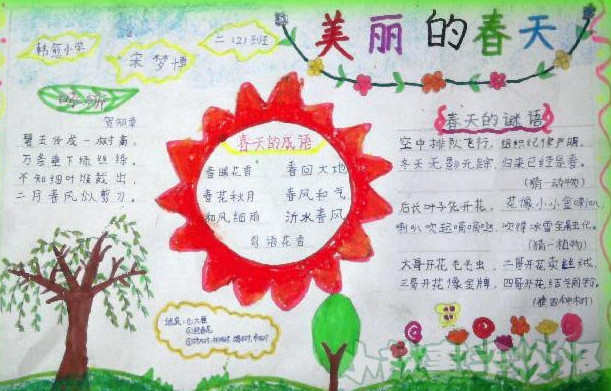 美丽的春天
韩愈小学
宋梦博
二(2)班
咏柳
贺知章
碧玉妆成一树高,
万条垂下绿丝绦,
不知细叶谁裁出,
二月春风似剪刀。
春天的成语
春暖花香 春回大地
春花秋月 春风和气
和风细雨 沂水春风
鸟语花香
春天的谜语
空中排队飞行,组织纪律严明,
冬天无影无踪,归来已经是春。
(猜一动物)
后长叶子先开花,花像小小金喇叭,
喇叭吹起嘀嘀哒,吹得冰雪全融化。
(猜一植物)
大哥开花毛毛虫,二哥开花卖丝绒,
三哥开花像金牌,四哥开花结
(猜四种树)